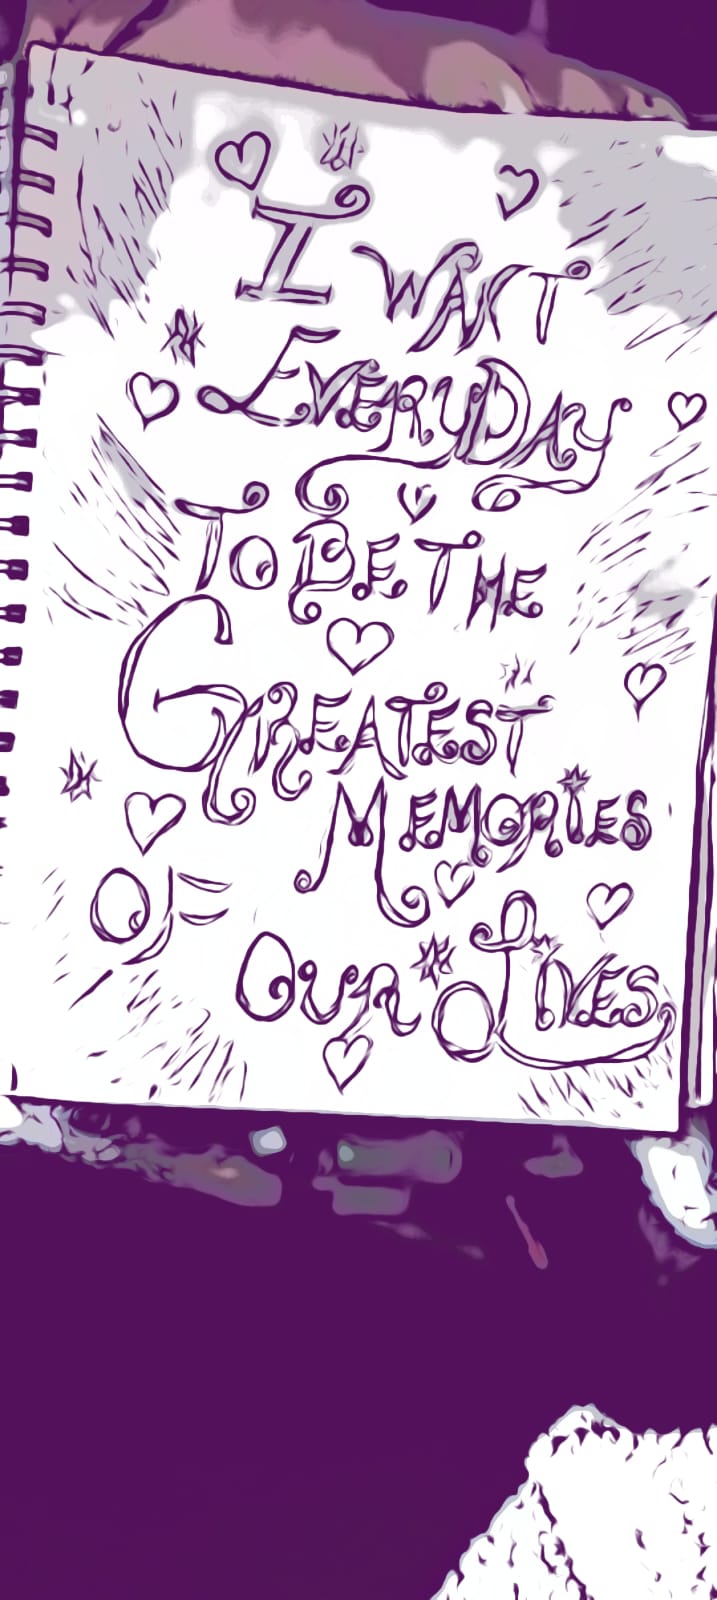 I
WANT
EVERYDAY
TO BE THE
GREATEST
MEMORIES
OF
OUR LIVES